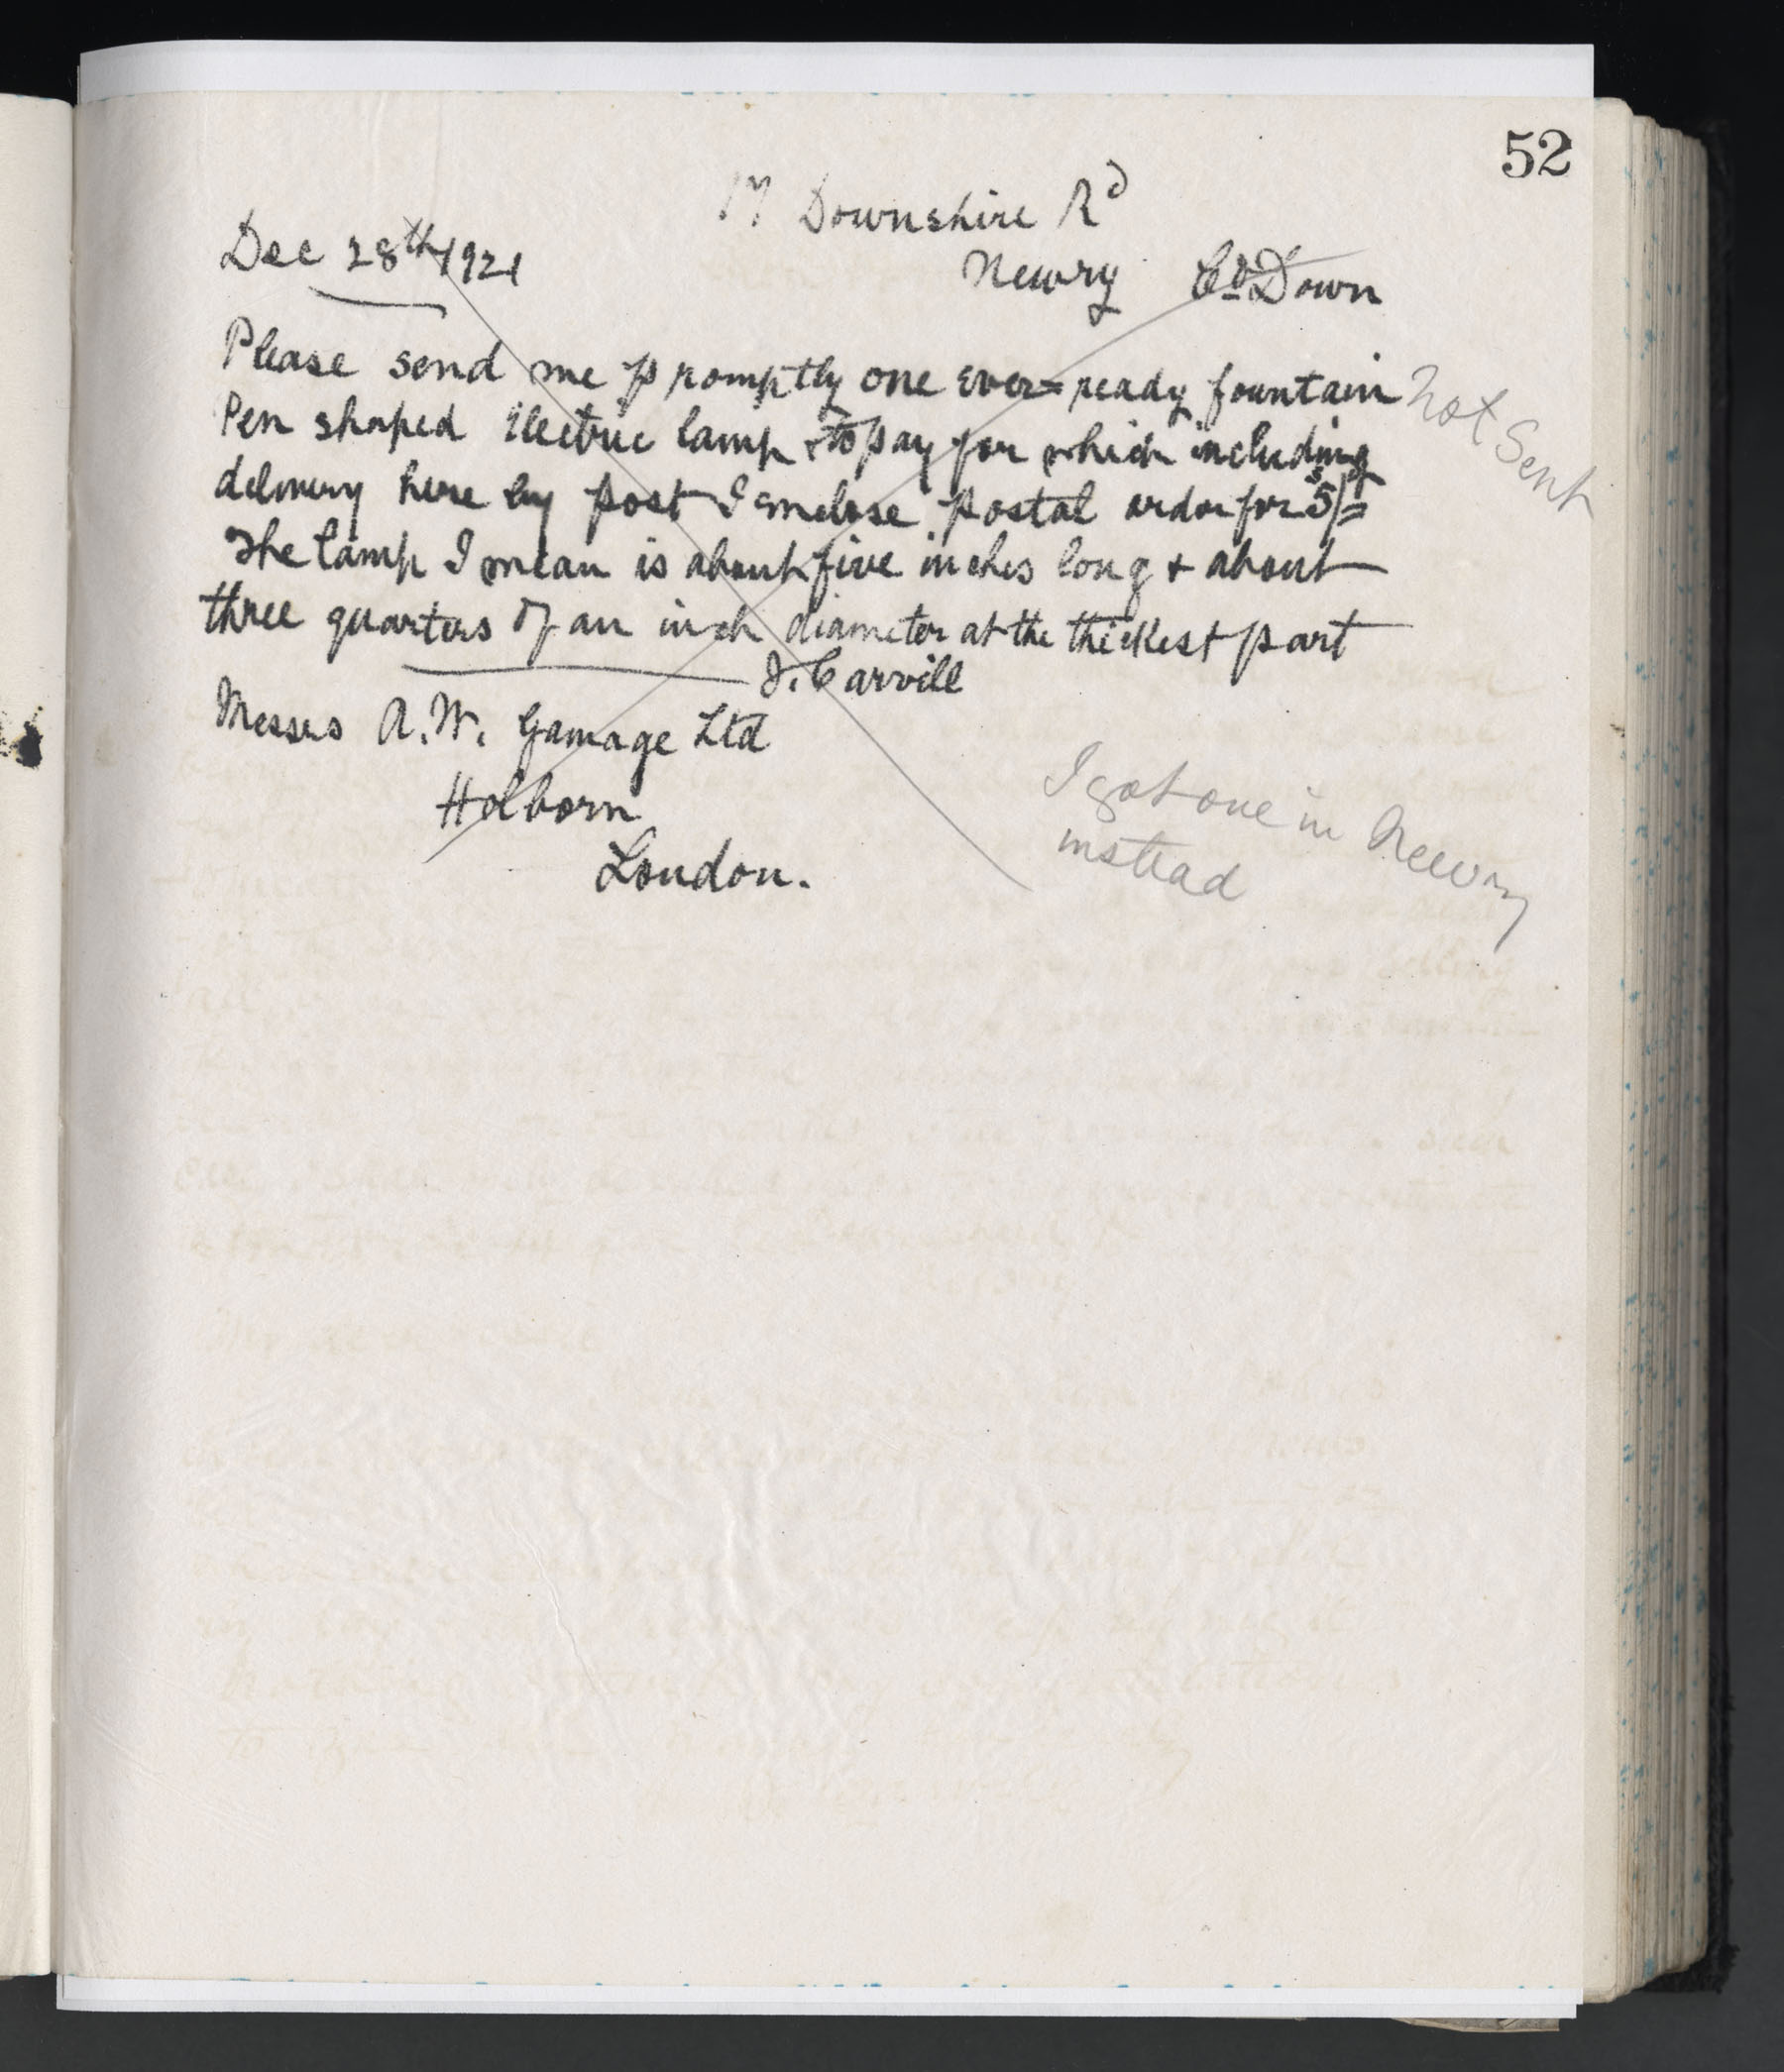 52
17 Downshire Rd
Dec 28th 1921
Newry Co Down
Please send me promptly one ever=ready fountain
Not Sent
Pen shaped electric lamp & to pay for which including
delivery here by post I enclose postal order for 5/=
The lamp I mean is about five inches long & about
three quarters of an inch diameter at the thickest part
J. Carvill
Messrs A. W. Gamage Ltd
Holborn
London.
I got one in Newry
instead